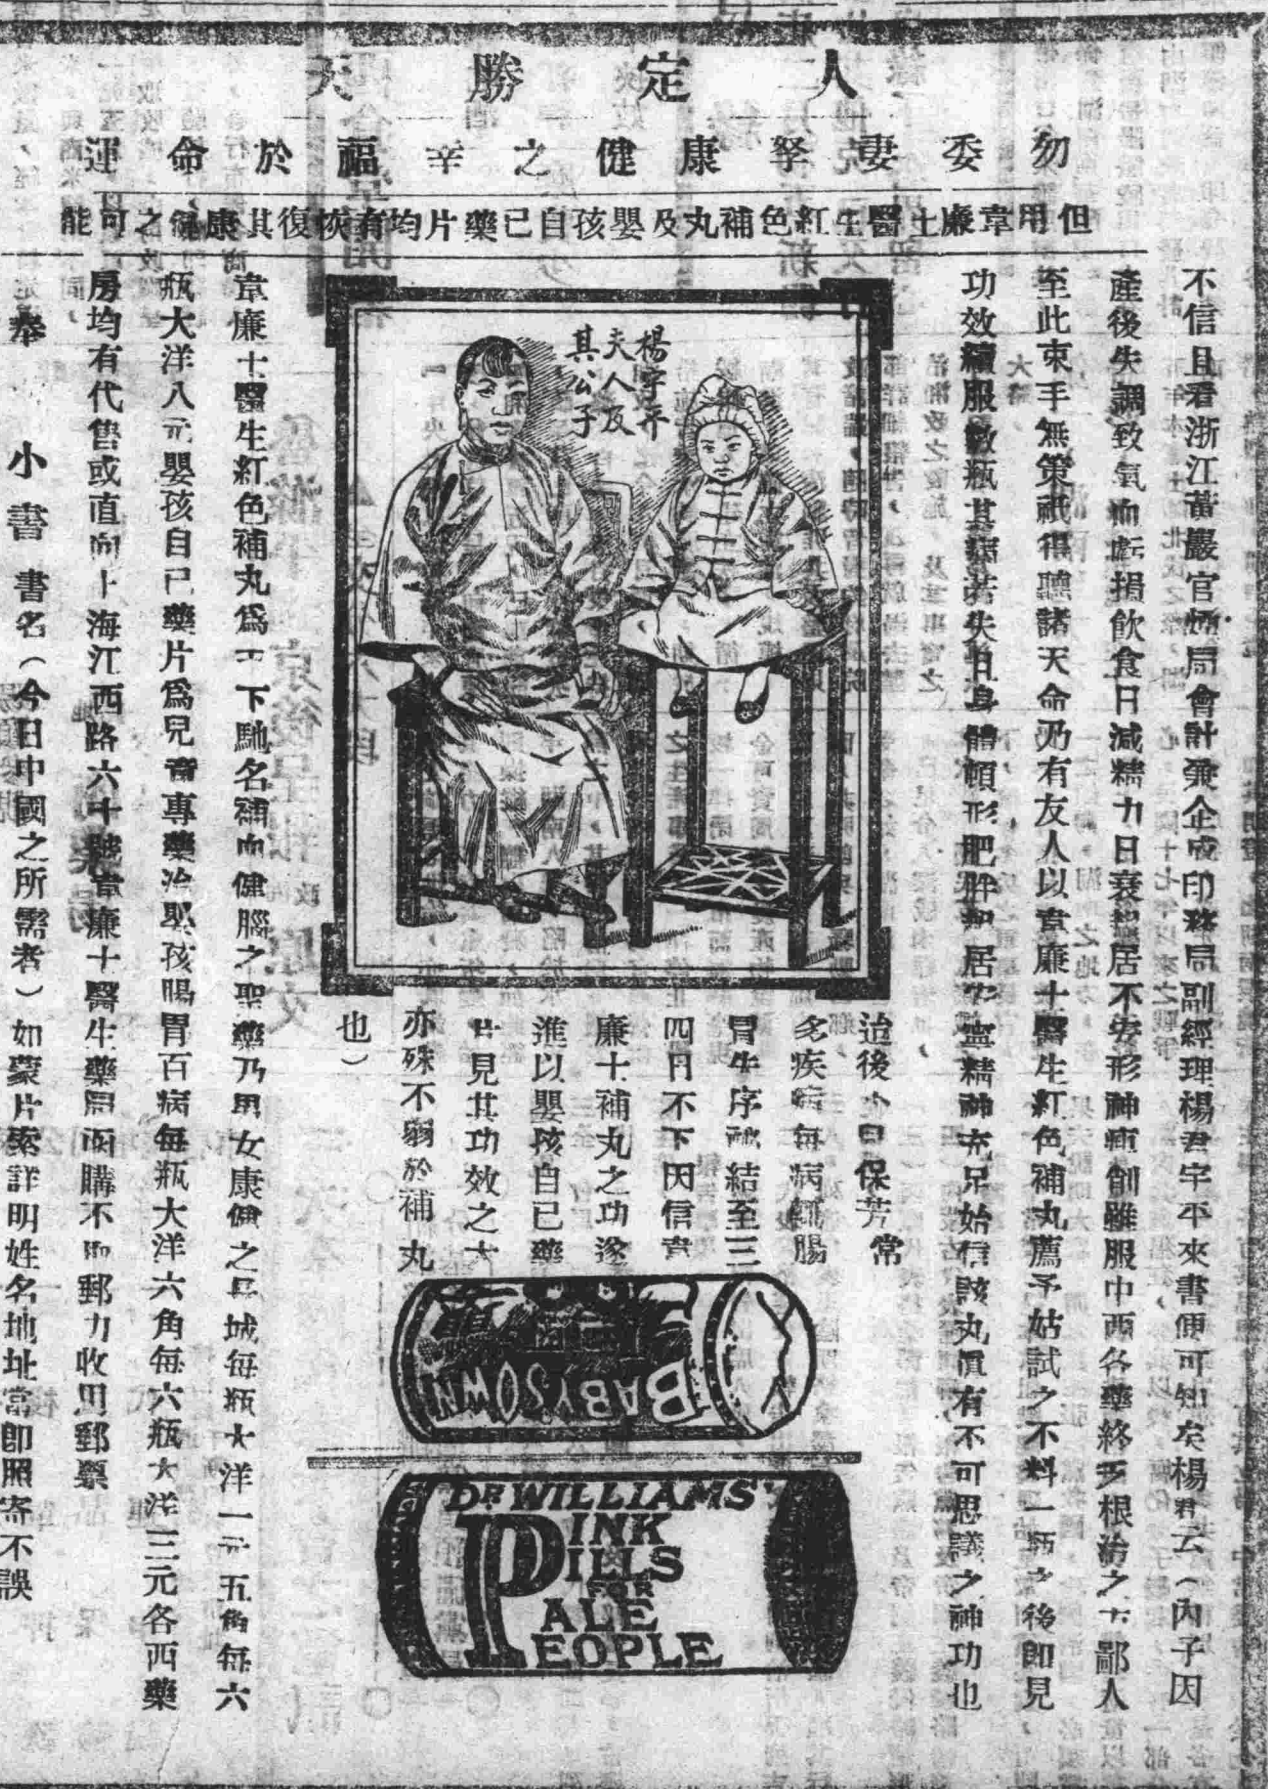 人定勝天
勿委妻孥康健之幸福於命運
但用韋廉士醫生紅色補丸及嬰孩自己藥片均有恢復其康健之可能
不信且看浙江黃巖官煙局會計兼企成印務局副經理楊君宇平來書便可知矣楊君云（內子因
產後失調致氣血虧損飲食日減精力日衰起居不安形神瘦削雖服中西各藥終乏根治之方鄙人
至此束手無策祇得聽諸天命乃有友人以韋廉士醫生紅色補丸薦予姑試之不料一瓶之後即見
功效續服數瓶其病若失且身體頓形肥胖起居安寧精神充足始信該丸真有不可思議之神功也
楊宇平
夫人及
其公子
治後小兒保芳常
多疾病每病輒腸
胃失序祕結至三
四日不下因信韋
廉士補丸之功遂
進以嬰孩自己藥
片見其功效之大
亦殊不弱於補丸
也）
BABYSOWN
DR WILLIAMS'
PINK
PILLS
FOR
PALE
PEOPLE
韋廉士醫生紅色補丸為天下馳名補血健腦之聖藥乃男女康健之長城每瓶大洋一元五角每六
瓶大洋八元嬰孩自己藥片為兒童專藥治嬰孩腸胃百病每瓶大洋六角每六瓶大洋三元各西藥
房均有代售或直向上海江西路六十號韋廉士醫生藥局函購不取郵力收用郵票
奉 小書 書名（今日中國之所需者）如蒙片索詳明姓名地址當即照寄不誤